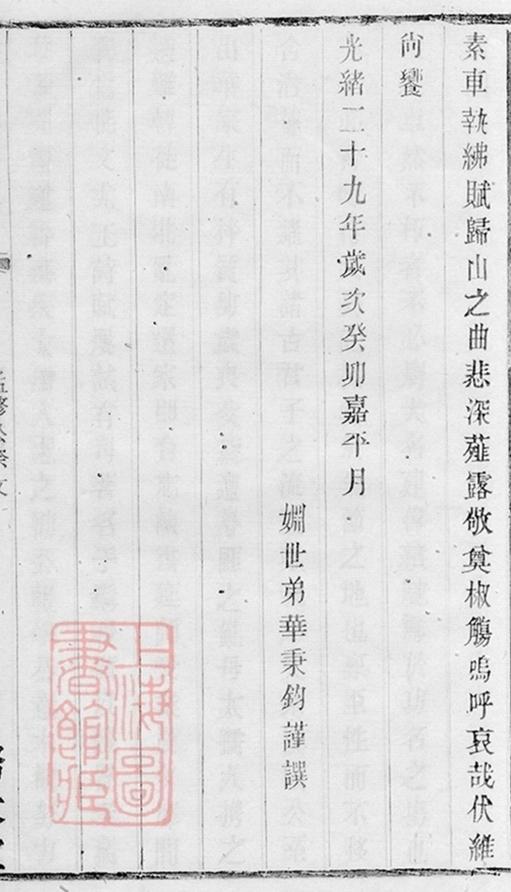 素車執紼賦歸山之曲悲深薤露敬奠椒觴嗚呼哀哉伏維
尙饗
光緒二十九年歲次癸卯嘉平月
姻世弟華秉鈞謹譔
上海圖書館藏